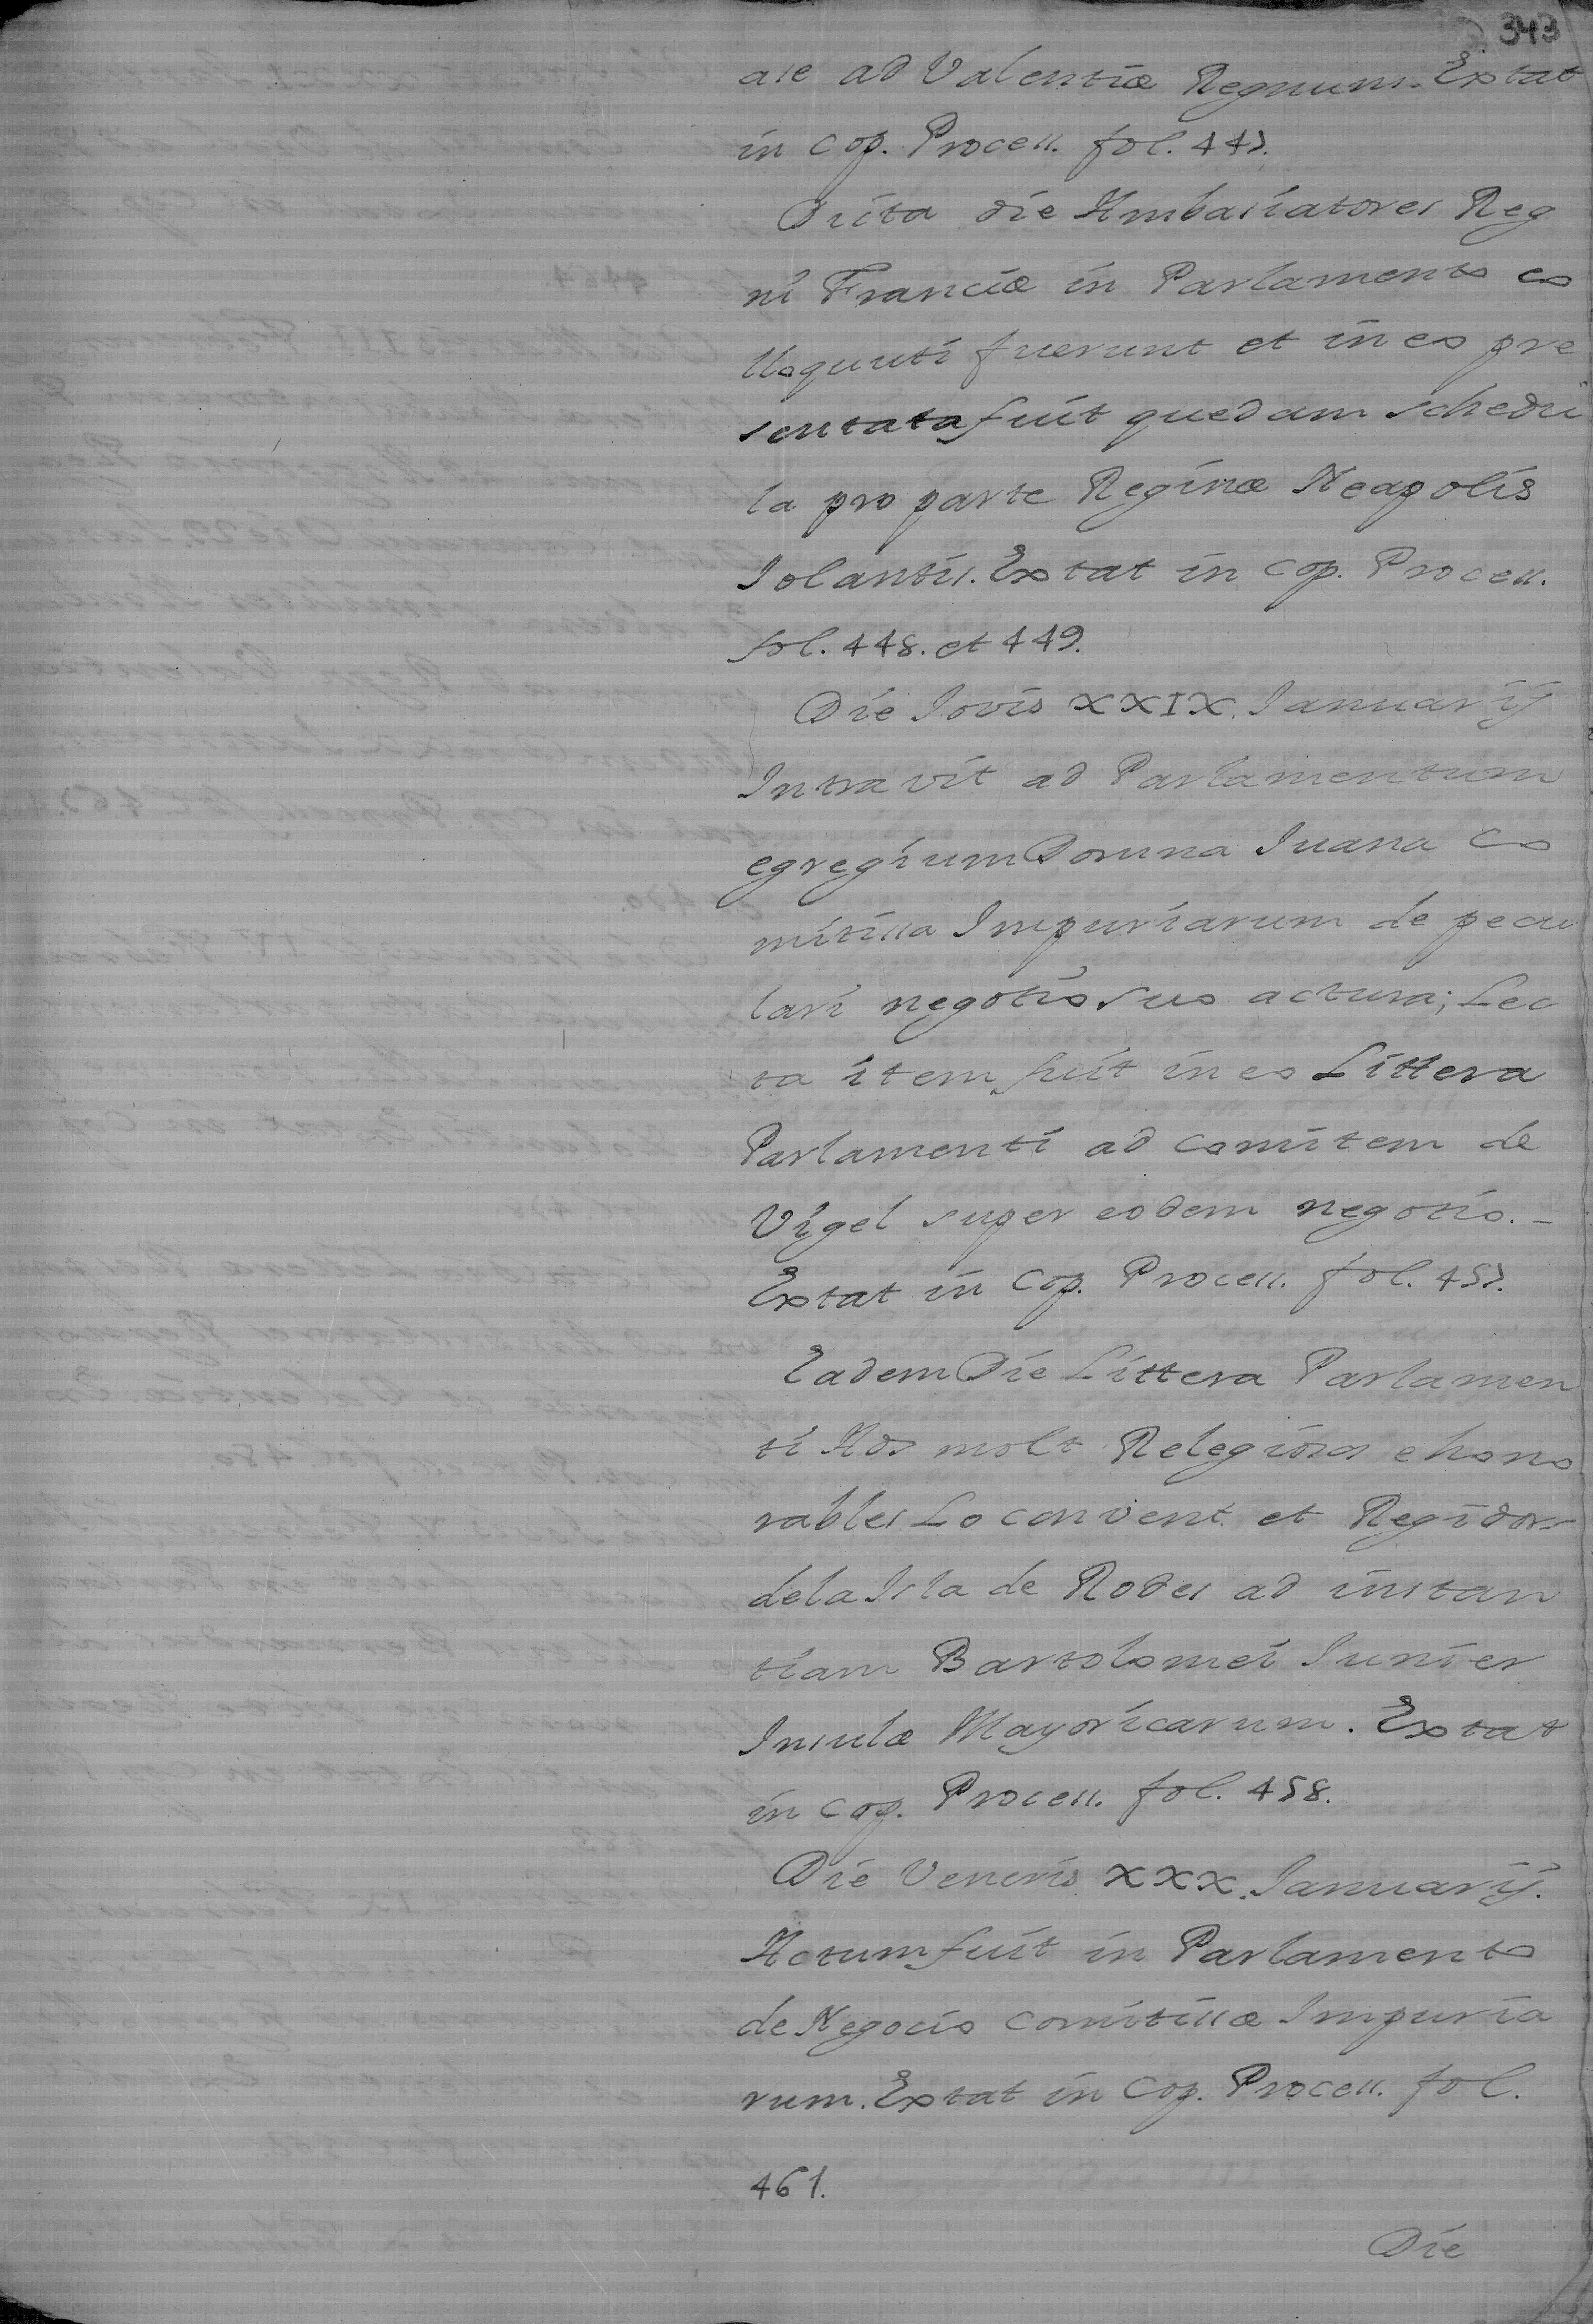 343
ase ad Valentiæ Regnum. Extat
in Cop. Process. fol. 447.
Dicta die Ambasiatores Reg
ni Franciæ in Parlamento co
lloquuti fuerunt et in eo pre
sentata fuit quedam schedu
la pro parte Reginæ Neapolis
Iolantis. Extat in Cop. Process.
fol. 448. et 449.
Die Iovis XXIX. Ianuarij
Intravit ad Parlamentum
egregium Domna Iuana Co
mitissa Impuriarum de pecu
lari negotio suo actura; Lec
ta item fuit in eo Littera
Parlamenti ad Comitem de
Vrgel super eodem negotio. -
Extat in Cop. Process. fol. 457.
Eadem Die Littera Parlamen
ti Als molt Relegiosos e hono
rables Lo convent et Regidors
de la Isla de Rodes ad instan
tiam Bartolomei Iunier
Insulæ Mayoricarum. Extat
in Cop. Process. fol. 458.
Die Veneris XXX. Ianuarij.
Actum fuit in Parlamento
de Negocio Comitissæ Impuria
rum. Extat in Cop. Process. fol.
461.
Die